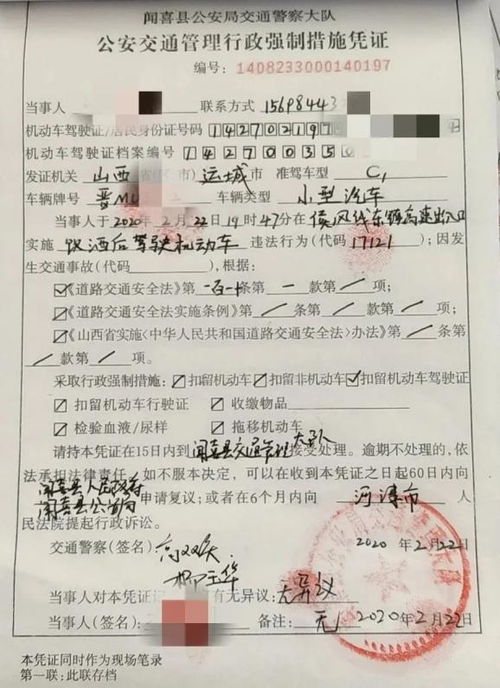 闻喜县公安局交通警察大队
公安交通管理行政强制措施凭证
编号：1408233000140197
当事人 联系方式 15698443
机动车驾驶证/居民身份证号码 142702197
机动车驾驶证档案编号 142700350
发证机关 山西 省(市) 运城 市 准驾车型 C1
车辆牌号 晋M 车辆类型 小型汽车
当事人于2020年2月22日19时47分在 东镇高速出入口
实施 饮酒后驾驶机动车 违法行为(代码17121)；因发
生交通事故(代码 )，根据：
《道路交通安全法》第 条第一款第 项；
《道路交通安全法实施条例》第 条第 款第 项；
《山西省实施〈中华人民共和国道路交通安全法〉办法》第 条第
款第 项。
采取行政强制措施：扣留机动车 扣留非机动车 扣留机动车驾驶证
扣留机动车行驶证 收缴物品
检验血液/尿样 拖移机动车
请持本凭证在15日内到闻喜县交通管理大队接受处理。逾期不处理的，依
法承担法律责任。如不服本决定，可以在收到本凭证之日起60日内向
闻喜县人民政府
闻喜县公安局 申请复议；或者在6个月内向 河津市 人
民法院提起行政诉讼。
交通警察(签名) 2020年2月22日
当事人对本凭证记 有无异议：无异议
当事人(签名) 备注：无 2020年2月22日
本凭证同时作为现场笔录
第一联：此联存档